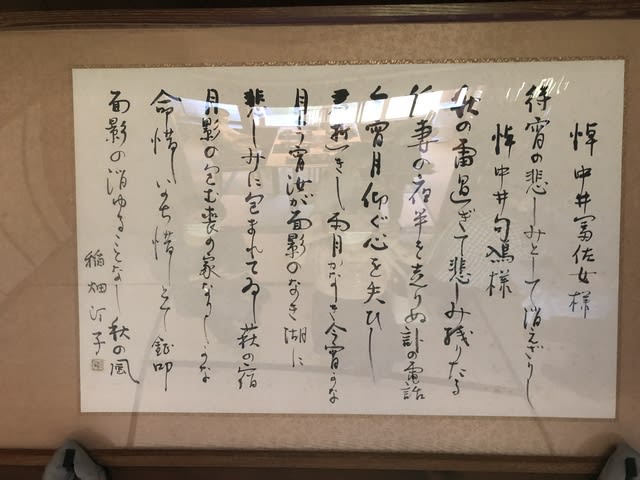 悼 中井冨佐女様
待宵の悲しみとして消えざりし
悼 中井句鴻様
秋の雷過ぎて悲しみ残りたる
稲妻の夜半を走りぬ訃の電話
今宵月仰ぐ心を失ひし
き雨月かなしき今宵かな
月も う宵汝が面影のなき湖に
悲しみに包まれてゐし萩の宿
月影の包む喪の家なりしかな
命惜しいち惜しとて鉦叩
面影の消ゆることなし秋の風
稲畑汀子